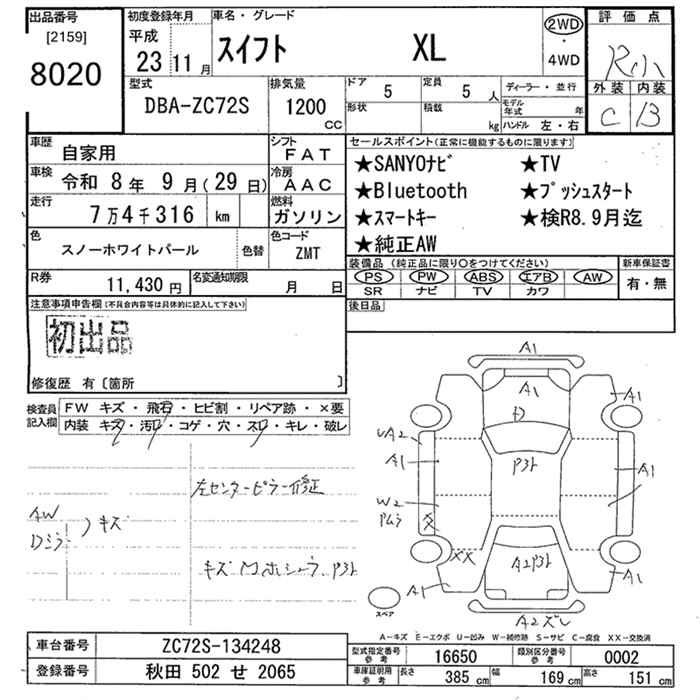 出品番号
[2159]
8020
初度登録年月
平成
23 11 月
車名・グレード
スイフト XL
2WD
・
4WD
評価点
外装 内装
C B
型式
DBA-ZC72S
排気量
1200
CC
ドア 5
定員 5 人
形状
積載 kg
ディーラー・並行
モデル年式 年
ハンドル 左・右
車歴 自家用
シフト FAT
車検 令和 8年 9月(29日)
冷房 AAC
走行 7万4千316 km
燃料 ガソリン
色 スノーホワイトパール
色替
色コード ZMT
R券 11,430 円
名変通知期限 月 日
セールスポイント(正常に機能するものに限ります)
★SANYOナビ ★TV
★Bluetooth ★プッシュスタート
★スマートキー ★検R8.9月迄
★純正AW
装備品(純正品に限り○をつけてください)
PS PW ABS エアB AW
SR ナビ TV カワ
新車保証書
有・無
後日品
注意事項申告欄(不具合内容等は具体的に記入して下さい)
初出品
修復歴 有〔箇所 〕
検査員記入欄
FW キズ・飛石・ヒビ割・リペア跡・×要
内装 キズ・汚れ・コゲ・穴・スレ・キレ・破レ
左センターピラー修正
AW
Dミラ
キズ
A1
A1
A1
UA2
A1
P3ト
A1
W2
XX
A2P3ト
A1
A1
A2ズレ
スペア
A-キズ E-エクボ U-凹み W-補修跡 S-サビ C-腐食 XX-交換済
車台番号 ZC72S-134248
登録番号 秋田 502 せ 2065
型式指定番号参考 16650
類別区分番号参考 0002
車庫証明用参考
長さ 385 cm
幅 169 cm
高さ 151 cm